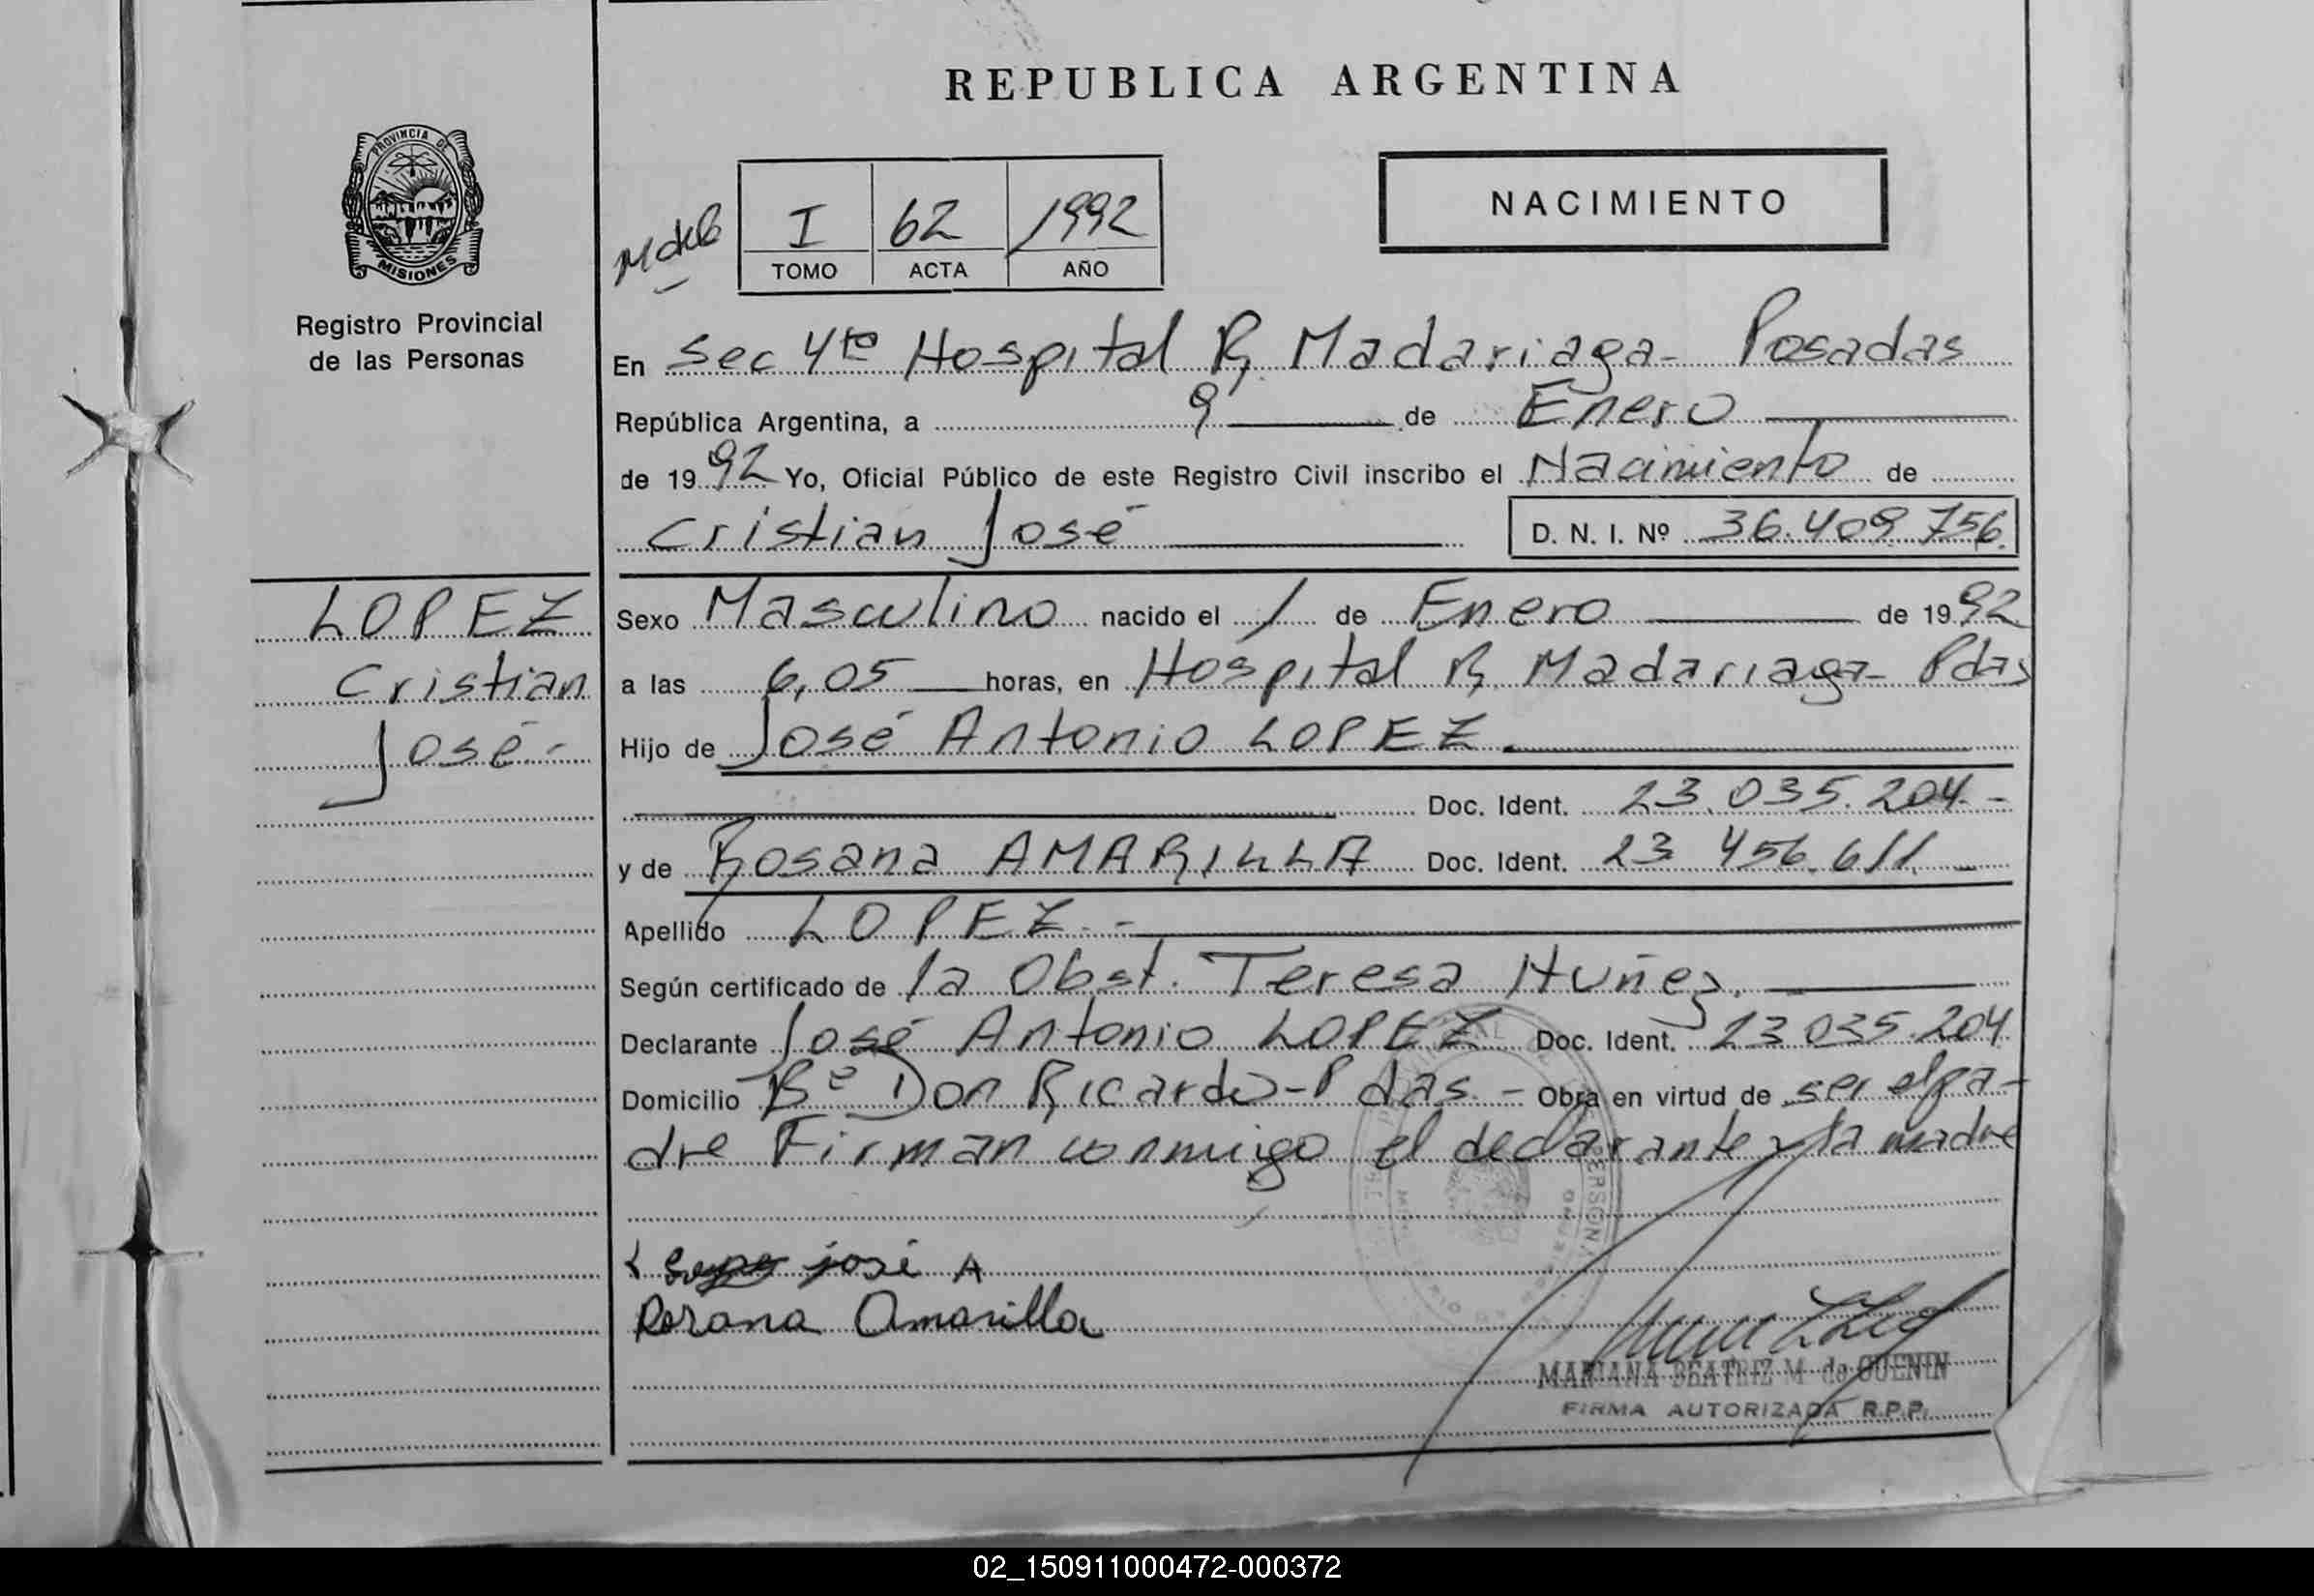 REPUBLICA ARGENTINA
PROVINCIA DE
MISIONES
Registro Provincial
de las Personas
NACIMIENTO
I 62 1992
TOMO ACTA AÑO
En Sec 4ta Hospital R. Madariaga - Posadas
República Argentina, a 9 de Enero
de 1992 Yo, Oficial Público de este Registro Civil inscribo el Nacimiento de
Cristian José D. N. I. Nº 36.409.756
LOPEZ
Cristian
José -
Sexo Masculino nacido el 1 de Enero de 1992
a las 6,05 horas, en Hospital R. Madariaga - Pdas
Hijo de José Antonio LOPEZ.
Doc. Ident. 23.035.204 -
y de Rosana AMARILLA Doc. Ident. 23 456.611
Apellido LOPEZ. -
Según certificado de la Obst. Teresa Nuñez.
Declarante José Antonio LOPEZ Doc. Ident. 23 035.204
Domicilio Bº Don Ricardo - Pdas. - Obra en virtud de ser el pa-
dre Firman conmigo el declarante y la madre
José A
Rosana Amarilla
MARIANA BEATRIZ M. de GUENIN
FIRMA AUTORIZADA R.P.P.
02_150911000472-000372